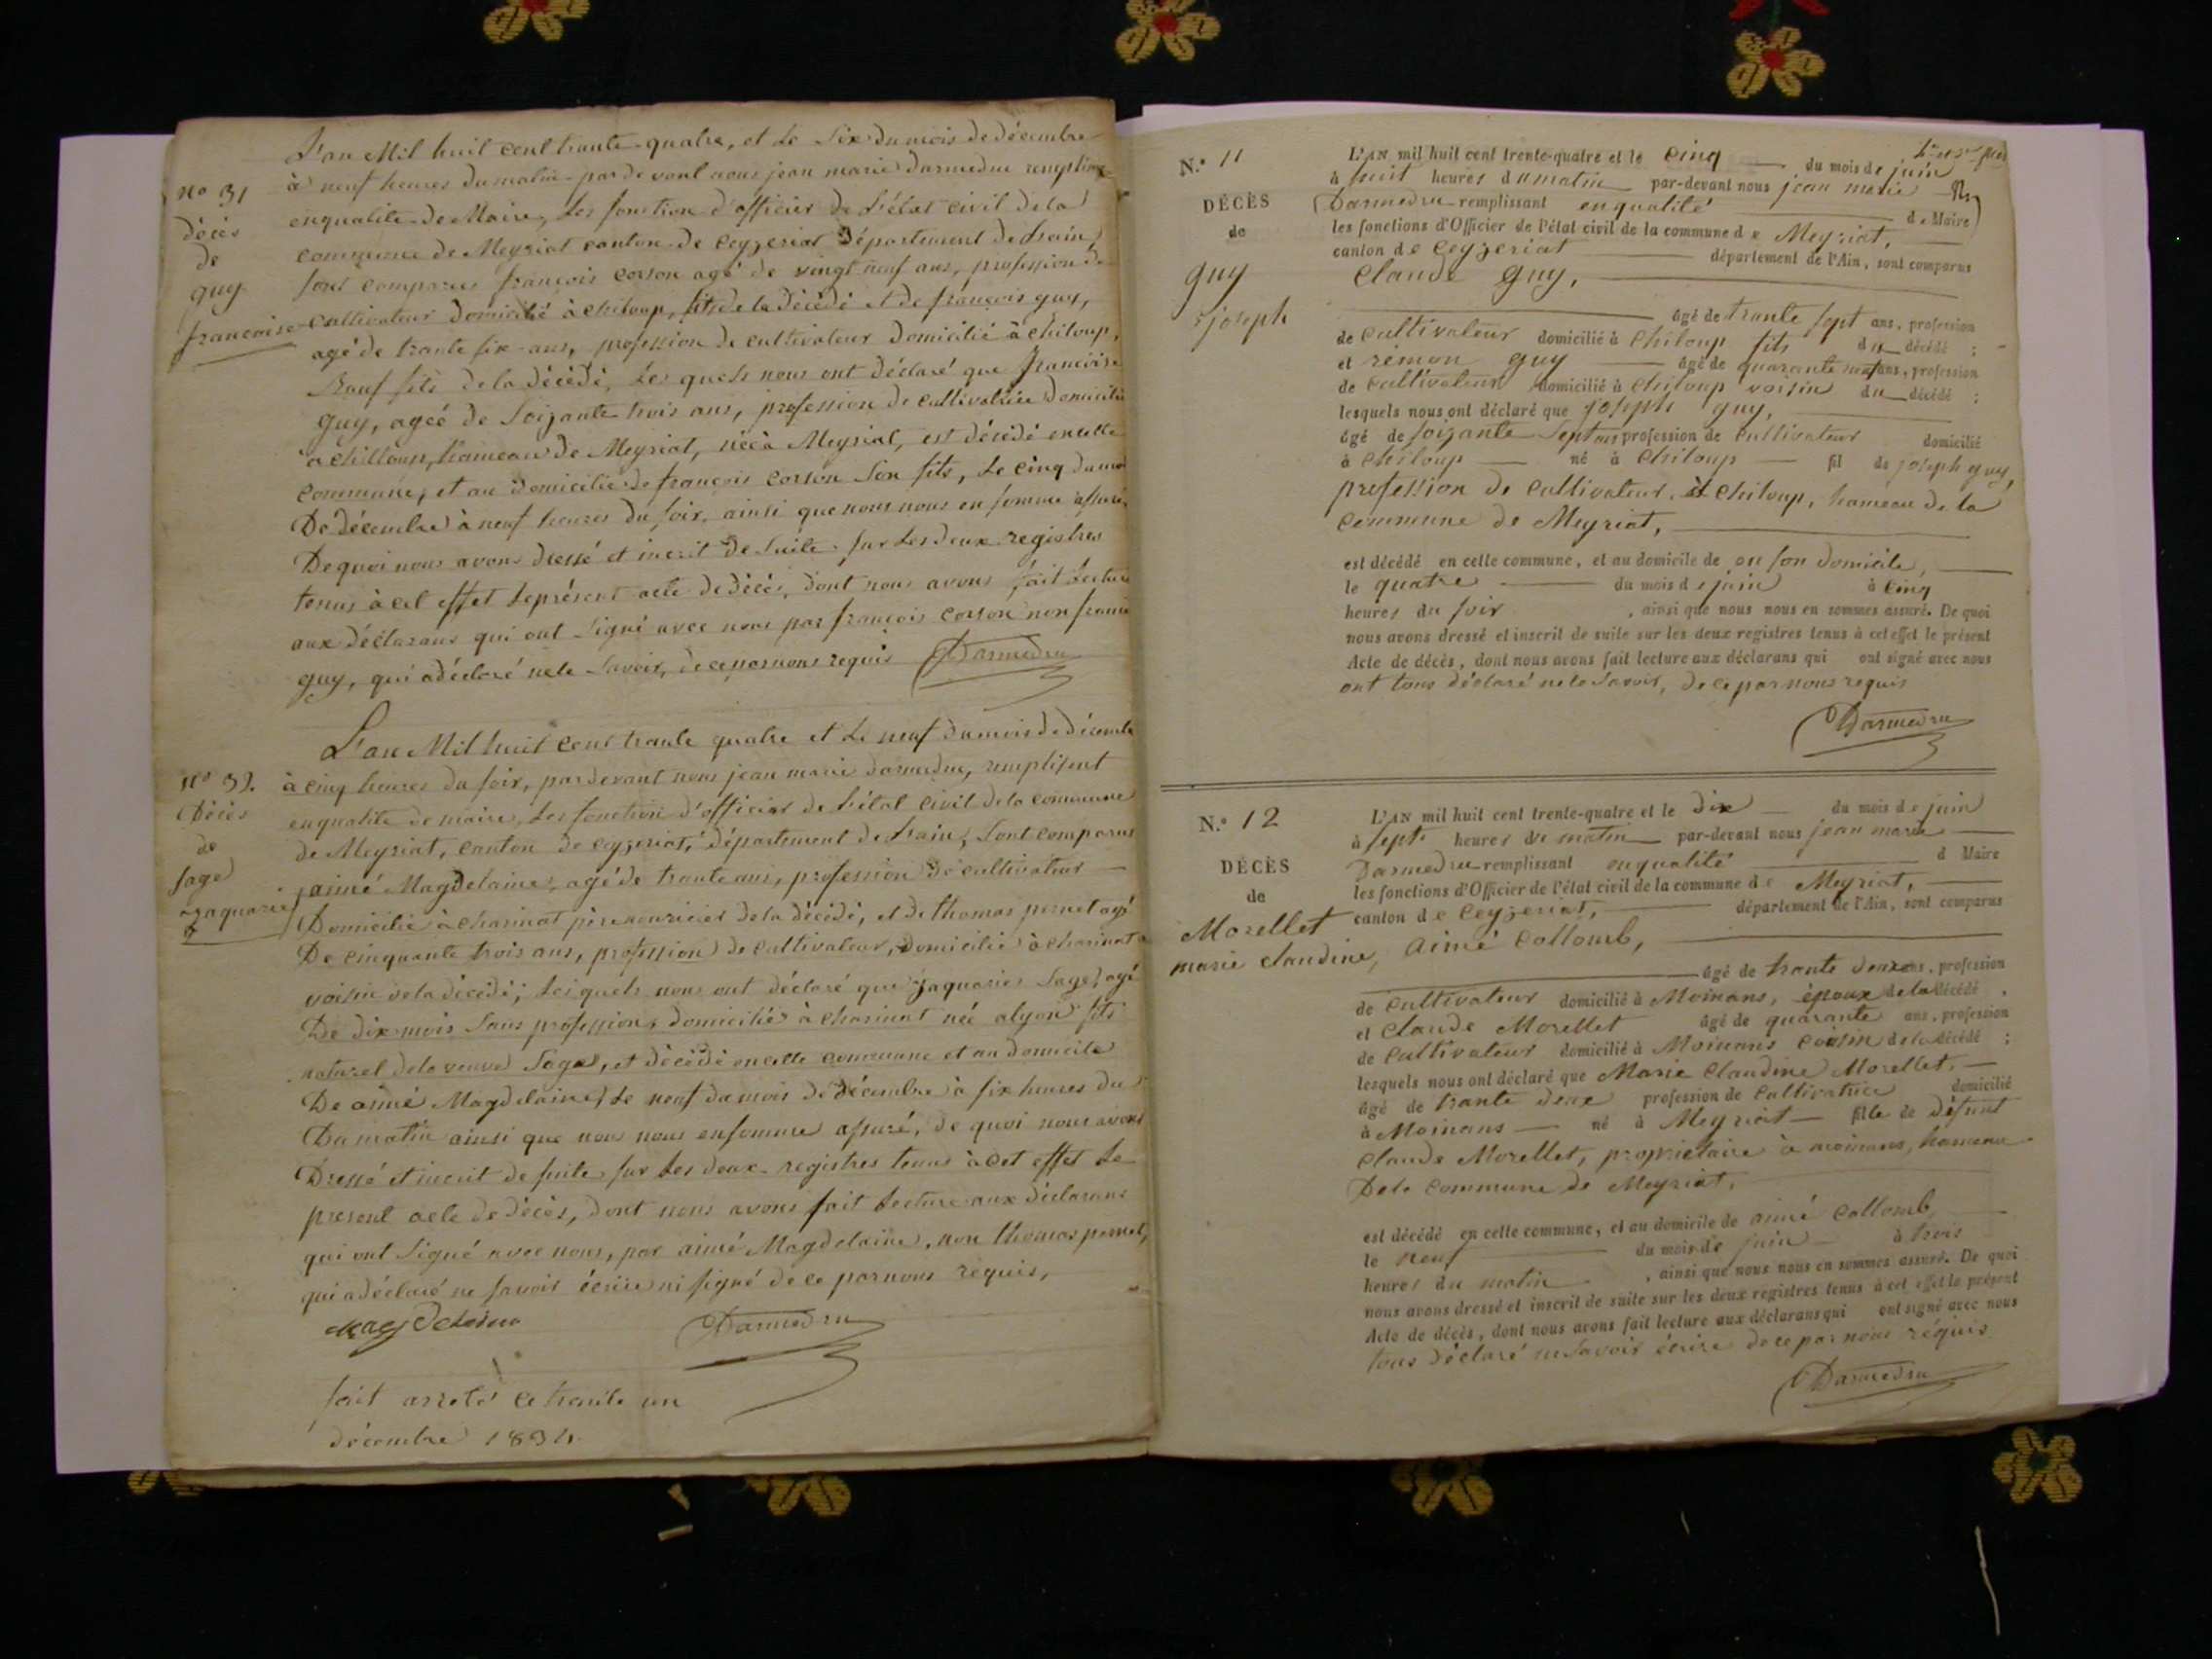 L'an Mil huit cent trante-quatre, et le Six du mois de décembre
à neuf heures du matin par devant nous jean marie darmedru remplissant
no 31
enqualité de Maire, les fonction d'officier de l'état civil de la
décès
commune de Meyriat canton de ceyzeriat Département de Lain,
de
guy
sont comparus françois corson agé de vingt neuf ans, profession de
françoise
cultivateur domicilié à chiloup, fils de la décédé et de françois guy,
agé de trante six ans, profession de cultivateur domicilié à chiloup,
Bauf fils de la décédé, les quels nous ont déclaré que françoise
guy, ageé de Soizante trois ans, profession de cultivatrice domicilié
a chilloup, hameau de Meyriat, néé à Meyriat, est décédé encette
commune, et au domicilie de françois corson Son fils, le cinq du mois
De décembre à neuf heures du soir, ainsi que nous nous en somme assuré,
De quoi nous avons dressé et inscrit de suite sur les deux registres
tenus à cet effet le présent acte de décès, dont nous avons fait lecture
aux déclarans qui ont signé avec nous par françois corson non françois
guy, qui a déclaré ne le Savoir, de ce par nous requis Darmedru
L'an Mil huit cent trante quatre et le neuf du mois de décembre
no 32.
à cinq heures du soir, par devant nous jean marie darmedru, remplisent
Décès
enqualité de maire, les fonction d'officier de l'état civil de la commune
de
de Meyriat, canton de ceyzeriat, département de Lain, Sont comparus
sage
aimé Magdelaine, agé de trante ans, profession de cultivateur
zaquarie
Domicilié à charinat père nouricier de la décédé, et de thomas pernet agé
De cinquante trois ans, profession de cultivateur, domicilié à charinat
voisin de la décédé; les quels nous ont déclaré que zaquaries Sage, agé
De dix mois Sans profession, domicilié à charinat néé a lyon fils
naturel de la veuve Sage, et décédé encette commune et au domicile
De aimé Magdelaine, le neuf du mois de décembre à six heures du
Du matin ainsi que nous nous ensomme assuré, de quoi nous avons
Dressé et inscrit de suite sur les deux registres tenus à cet effet le
present acte de décès, dont nous avons fait lecture aux déclarans
qui ont Signé avec nous, par aimé Magdelaine, non thomas pernet,
qui a déclaré ne savoir écrire ni signé de ce par nous requis,
Magdelaine Darmedru
fait arreté ce trante un
décembre 1834.
N.° 11
L'AN mil huit cent trente-quatre et le cinq du mois de juin
à huit heures du matin par-devant nous jean marie
DÉCÈS
Darmedru remplissant enqualité de Maire
de
les fonctions d'Officier de l'état civil de la commune de Meyriat,
canton de Ceyzeriat département de l'Ain, sont comparus
guy
claude guy,
joseph
âgé de trante sept ans, profession
de cultivateur domicilié à Chiloup fils du décédé ;
et rémon guy âgé de quarante neuf ans, profession
de cultivateur domicilié à chiloup voisin du décédé ;
lesquels nous ont déclaré que joseph guy,
âgé de soizante Sept ans profession de cultivateur domicilié
à chiloup né à chiloup fil de joseph guy,
profession de cultivateur, à chiloup, hameau de la
commune de Meyriat,
est décédé en cette commune, et au domicile de en son domicile,
le quatre du mois de juin à cinq
heures du soir , ainsi que nous nous en sommes assuré. De quoi
nous avons dressé et inscrit de suite sur les deux registres tenus à cet effet le présent
Acte de décès, dont nous avons fait lecture aux déclarans qui ont signé avec nous
ont tous déclaré ne le Savoir, de ce par nous requis
Darmedru
N.° 12
L'AN mil huit cent trente-quatre et le dix du mois de juin
à sept heures du matin par-devant nous jean marie
DÉCÈS
Darmedru remplissant enqualité d Maire
de
les fonctions d'Officier de l'état civil de la commune de Meyriat,
Morellet
canton de Ceyzeriat, département de l'Ain, sont comparus
marie claudine,
aimé collomb,
âgé de trante deux ans, profession
de cultivateur domicilié à Moinans, époux de la décédé ,
et claude Morellet âgé de quarante ans, profession
de cultivateur domicilié à Moinans coisin de la décédé ;
lesquels nous ont déclaré que Marie Claudine Morellet,
âgé de trante deux profession de cultivatrice domicilié
à Moinans né à Meyriat fille de défunt
claude Morellet, propriétaire à moinans, hameau
De la commune de Meyriat,
est décédé en cette commune, et au domicile de aimé collomb
le neuf du mois de juin à trois
heures du matin , ainsi que nous nous en sommes assuré. De quoi
nous avons dressé et inscrit de suite sur les deux registres tenus à cet effet le présent
Acte de décès, dont nous avons fait lecture aux déclarans qui ont signé avec nous
tous déclaré ne Savoir écrire de ce par nous réquis
Darmedru